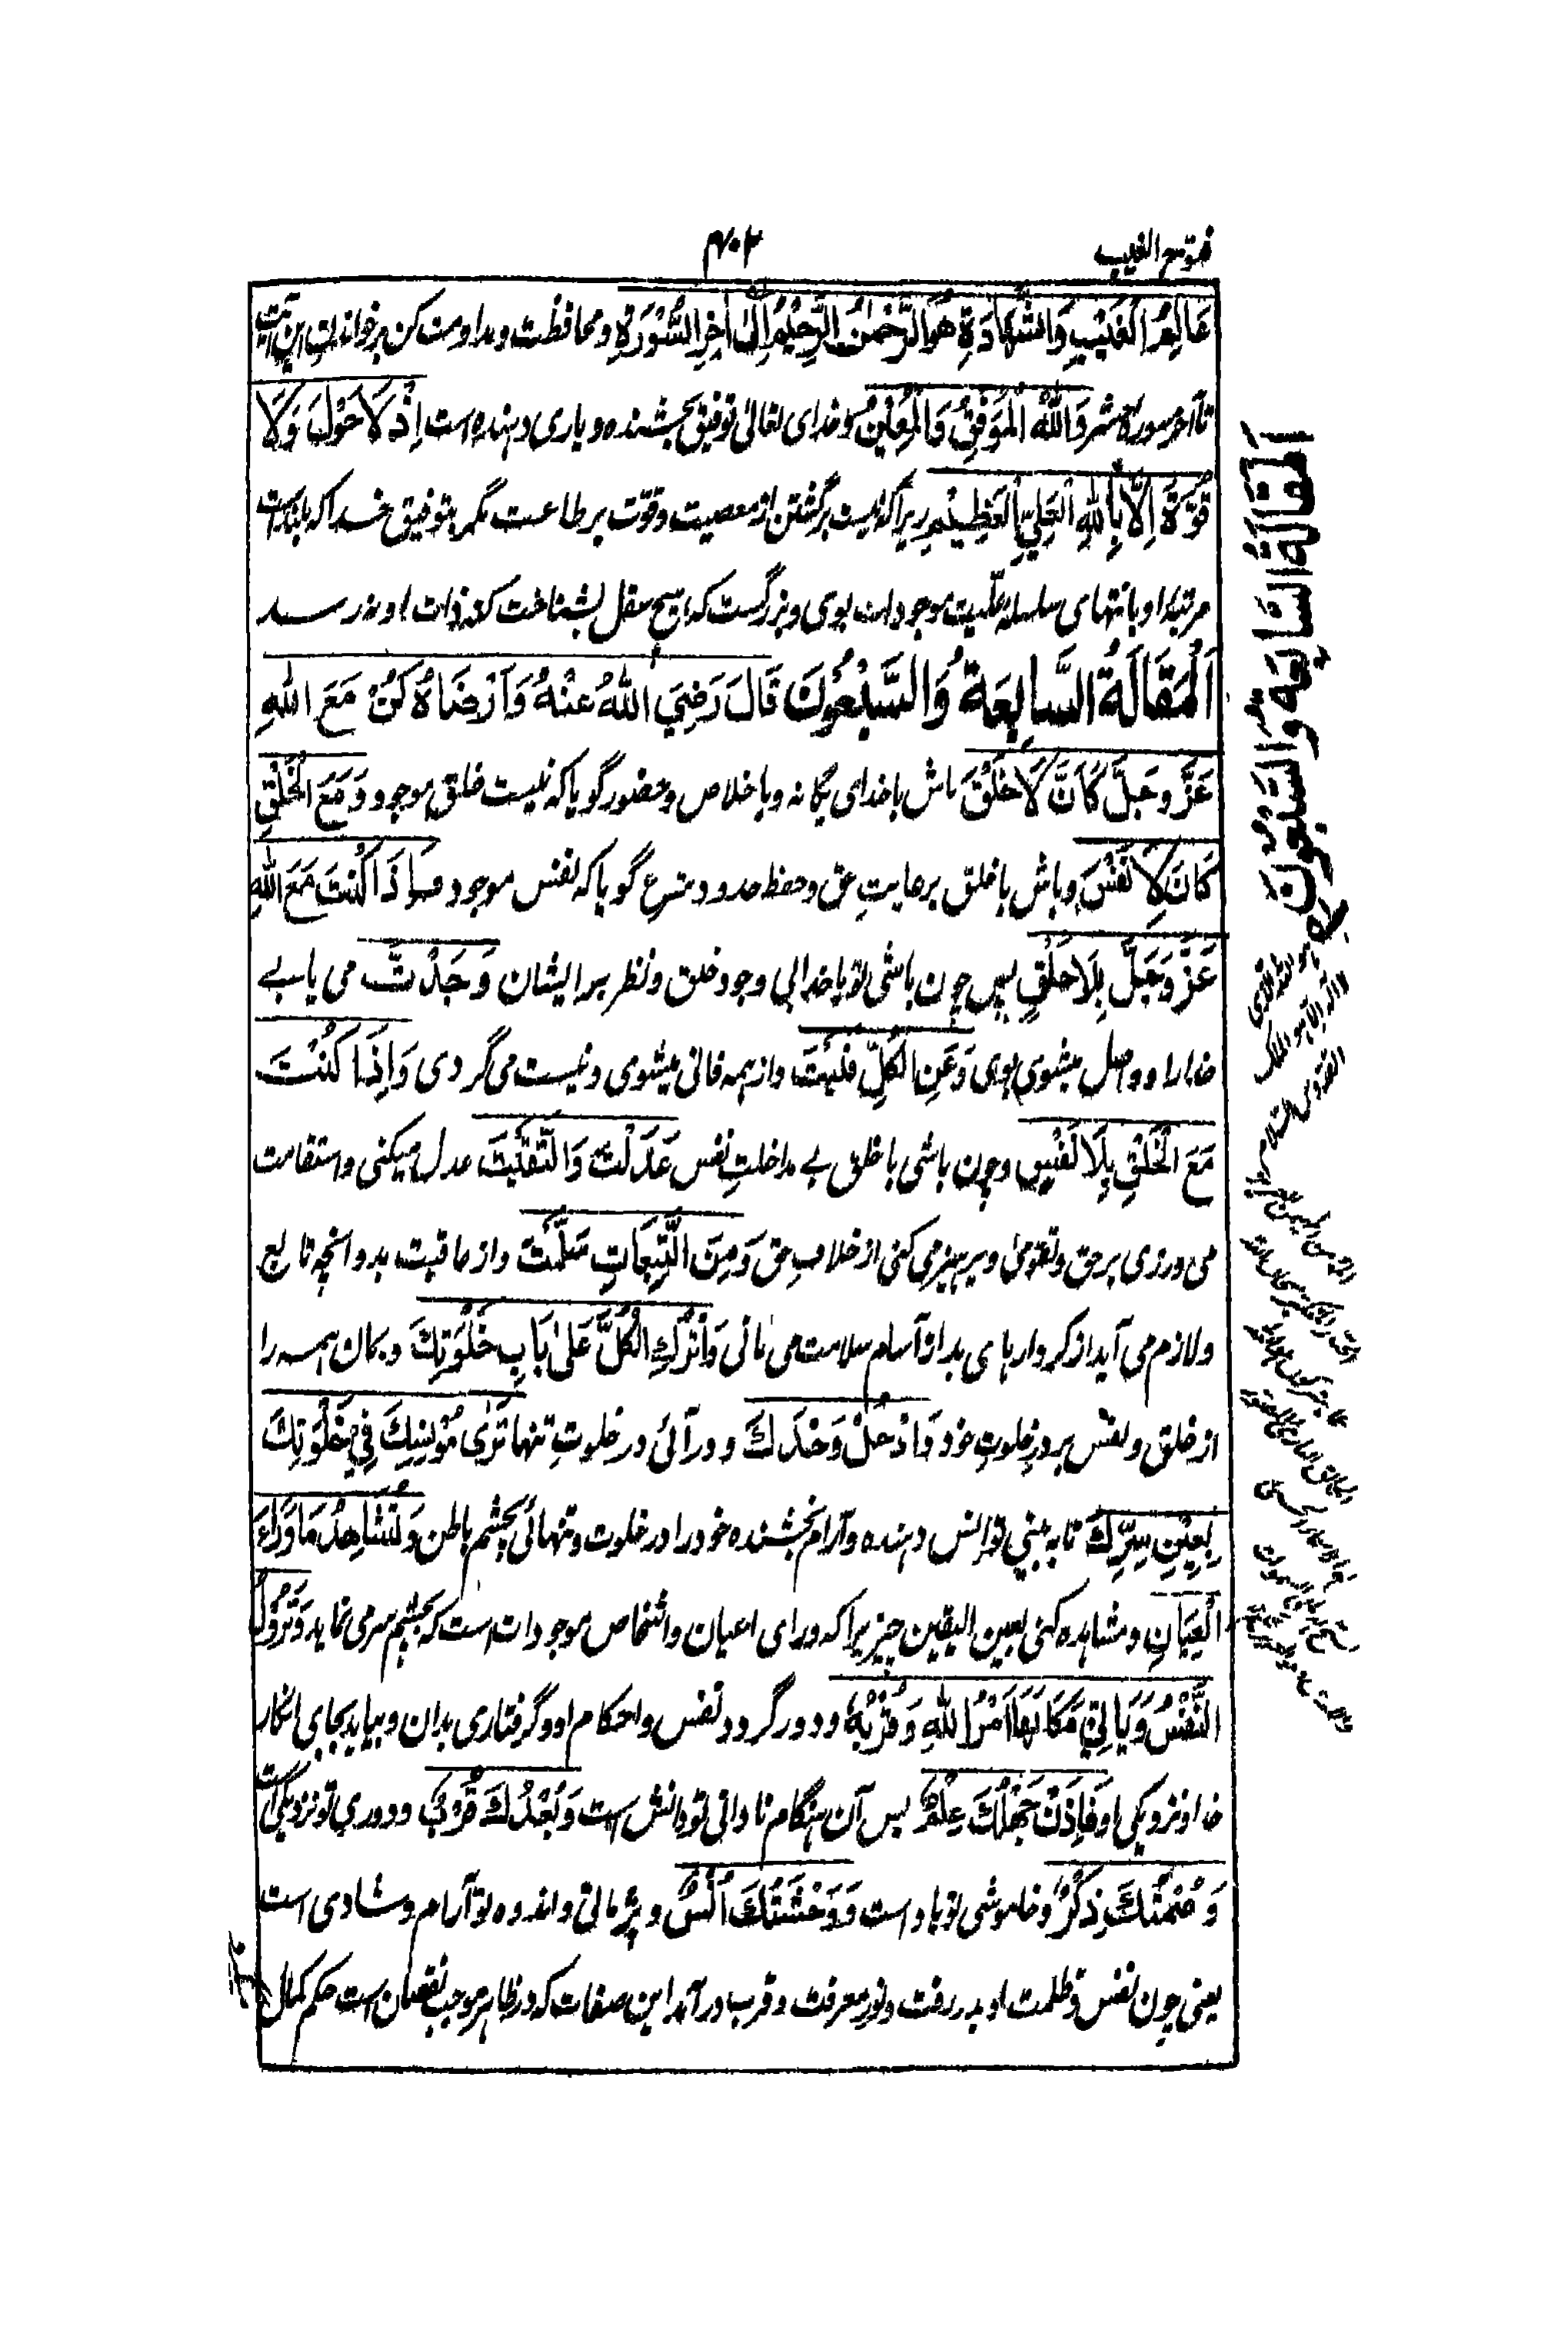 فتوح الغیب
۴۰۲
عَالِمُ الْغَيْبِ وَالشَّهَادَةِ هُوَ الرَّحْمٰنُ الرَّحِيْمُ اِلٰى اٰخِرِ السُّوْرَةِ ومحافظت ومداومت کن بر خواندن این آیت
تا آخر سورۂ حشر وَاللهُ الْمُوَفِّقُ وَالْمُعِيْنُ و خدای تعالیٰ توفیق بخشنده و یاری دهنده است اِذْ لَا حَوْلَ وَلَا
قُوَّةَ اِلَّا بِاللهِ الْعَلِيِّ الْعَظِيْمِ زیرا که نیست برگشتن از معصیت و قوّت بر طاعت مگر بتوفیق خدا که بلند است
مرتبۂ او بانتهای سلسلۂ علّیت موجودات بوی و بزرگست که هیچ عقل بشناخت کنه ذات او نرسد
اَلْمَقَالَةُ السَّابِعَةُ وَالسَّبْعُوْنَ قَالَ رَضِيَ اللهُ عَنْهُ وَاَرْضَاهُ كُنْ مَعَ اللهِ
عَزَّ وَجَلَّ كَاَنَّ لَا خَلْقَ باش با خدای یگانه و با خلاص و حضور گویا که نیست خلق موجود وَمَعَ الْخَلْقِ
كَاَنَّ لَا نَفْسَ و باش با خلق برعایتِ حق و حفظ حدود شرع گویا که نفس موجود فَاِذَا كُنْتَ مَعَ اللهِ
عَزَّ وَجَلَّ بِلَا خَلْقٍ پس چون باشی تو با خدا بی وجود خلق و نظر بر ایشان وَجَدْتَ می یابے
خدا را و واصل میشوی بوی وَعَنِ الْكُلِّ فَنِيْتَ و از همه فانی میشوی و نیست می گردی وَاِذَا كُنْتَ
مَعَ الْخَلْقِ بِلَا نَفْسٍ و چون باشی با خلق بے مداخلتِ نفس عَدَلْتَ وَاتَّقَيْتَ عدل میکنی و استقامت
می ورزی بر حق و تقویٰ و پرهیز می کنی از خلافِ حق وَمِنَ التَّبِعَاتِ سَلِمْتَ و از عاقبت بد و آنچه تابع
و لازم می آید از کردارهای بد از آسام سلامت می مانی وَاتْرُكِ الْكُلَّ عَلٰى بَابِ خَلْوَتِكَ و بمان همه را
از خلق و نفس بر درِ خلوتِ خود وَادْخُلْ وَحْدَكَ و درآئی در خلوتِ تنها تَرٰى مُوْنِسَكَ فِيْ خَلْوَتِكَ
بِعَيْنِ سِرِّكَ تا به بینی تو انس دهنده و آرام بخشنده خود را در خلوت و تنهائی بچشم باطن وَتُشَاهِدُ مَا وَرَاءَ
الْعِيَانِ و مشاهده کنی بعین الیقین چیزیرا که ورای اعیان و اشخاص موجودات است که بچشم سر می نماید وَتَزُوْلُ
النَّفْسُ وَيَأْتِيْ مَكَانَهَا اَمْرُ اللهِ وَقُرْبُهٗ و دور گردد نفس و احکام او و گرفتاری بدان و بیاید بجای آن کار
خدا و نزدیکی او فَاِذَنْ جَهْلُكَ عِلْمٌ پس آن هنگام نادانی تو دانش است وَبُعْدُكَ قُرْبٌ و دوری تو نزدیکی است
وَصَمْتُكَ ذِكْرٌ و خاموشی تو یاد است وَوَحْشَتُكَ اُنْسٌ و پژمانی و اندوه تو آرام و شادی است
یعنی چون نفس و ظلمت او بدر رفت و نور معرفت و قرب درآمد این صفات که در ظاهر موجب نقصان است حکم کمال
اَلْمَقَالَةُ السَّابِعَةُ وَالسَّبْعُوْنَ